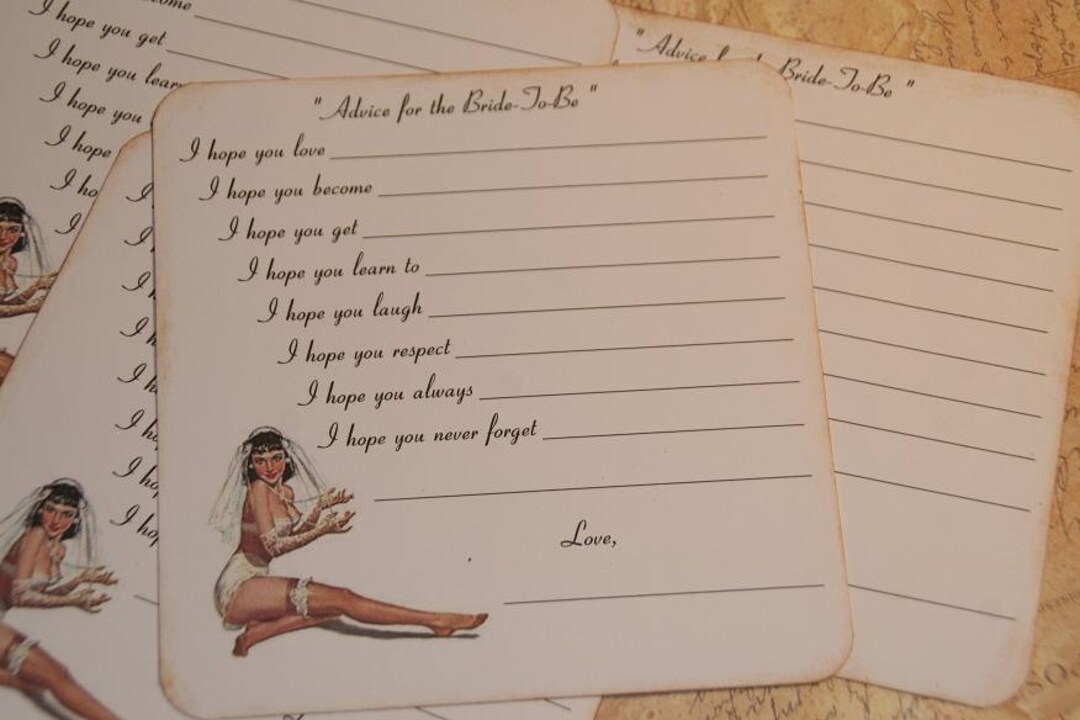 " Advice for the Bride-To-Be "
I hope you love
I hope you become
I hope you get
I hope you learn to
I hope you laugh
I hope you respect
I hope you always
I hope you never forget
Love,
I hope you get
I hope you learn
I hope you
I hope
"Advice Bride-To-Be "